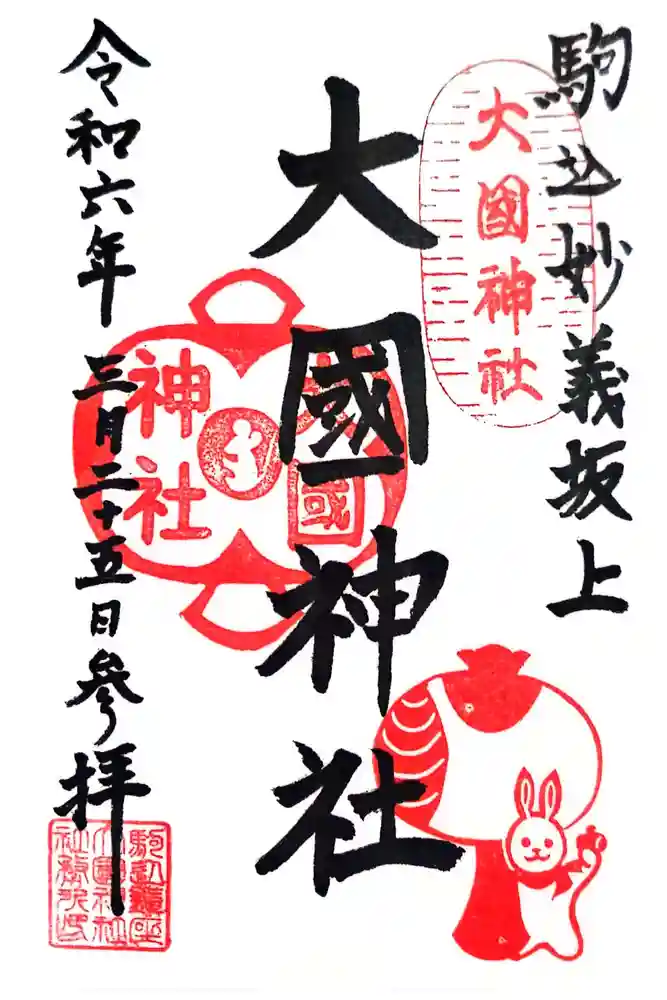 駒込妙義坂上
大國神社
大國神社
大國
神社
令和六年三月二十五日參拝